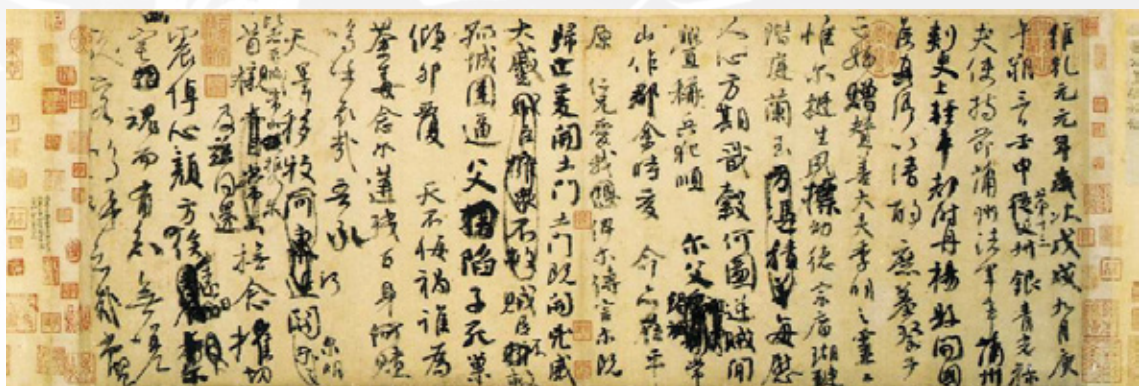 維乾元元年歲次戊戌九月庚
午朔三日壬申第十三叔銀青光祿
夫使持節蒲州諸軍事蒲州
刺史上輕車都尉丹楊縣開國
侯真卿以清酌庶羞祭于
亡姪贈贊善大夫季明之靈曰
惟爾挺生夙標幼德宗廟瑚璉
階庭蘭玉方憑積善每慰
人心方期戩穀何圖逆賊閒
釁稱兵犯順爾父竭誠常
山作郡余時受命亦在平
原仁兄愛我俾爾傳言爾既
歸止爰開土門土門既開凶威
大蹙賊臣擁衆不救賊臣不救
孤城圍逼父陷子死巢
傾卵覆天不悔禍誰為
荼毒念爾遘殘百身何贖
嗚呼哀哉吾承
天澤移牧河關泉明
比者再陷常山携爾
首櫬及茲同還撫念摧切
震悼心顏方俟遠日
魂而有知無嗟
久客嗚呼哀哉尚饗